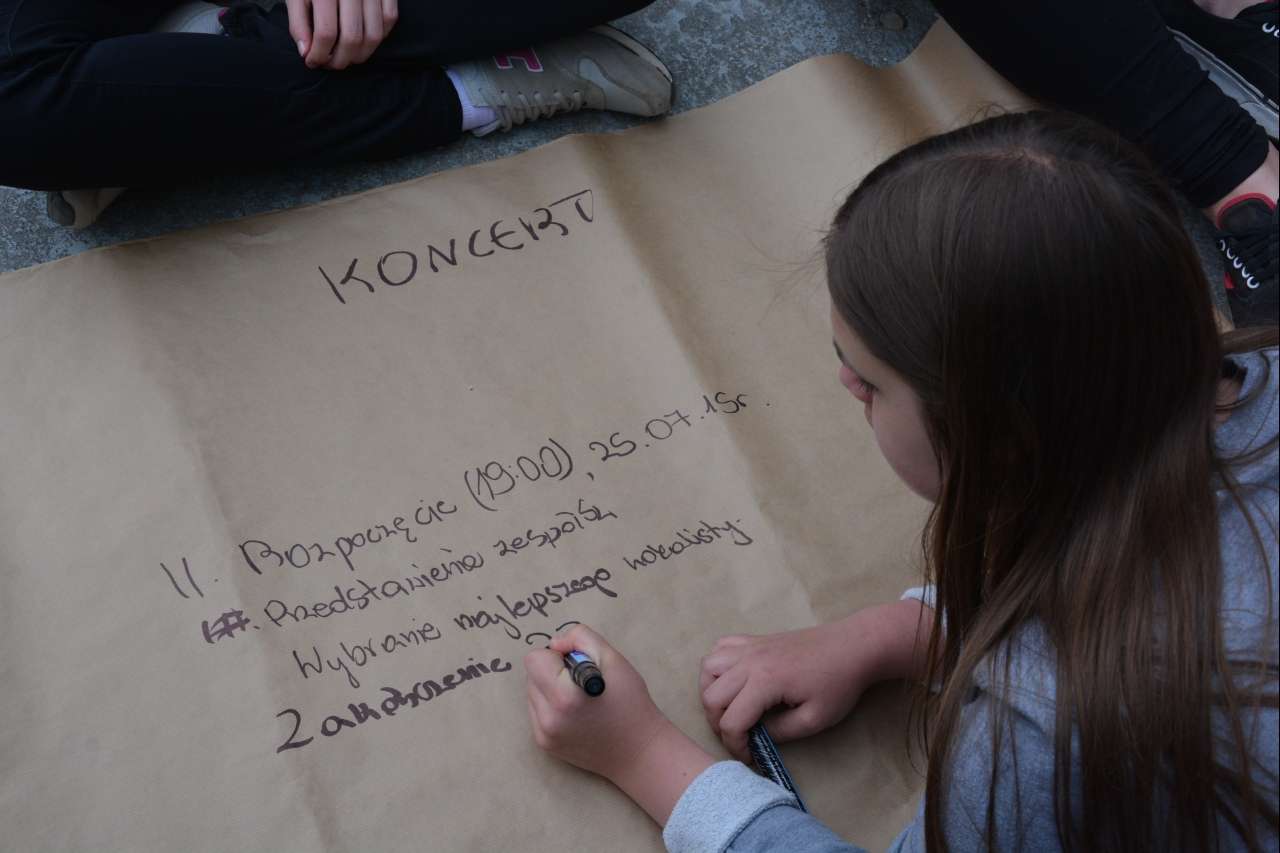 KONCERT
11. Rozpoczęcie (19:00), 25.07.15r.
Przedstawienie zespołu
Wybranie najlepszego wokalisty.
Zakończenie